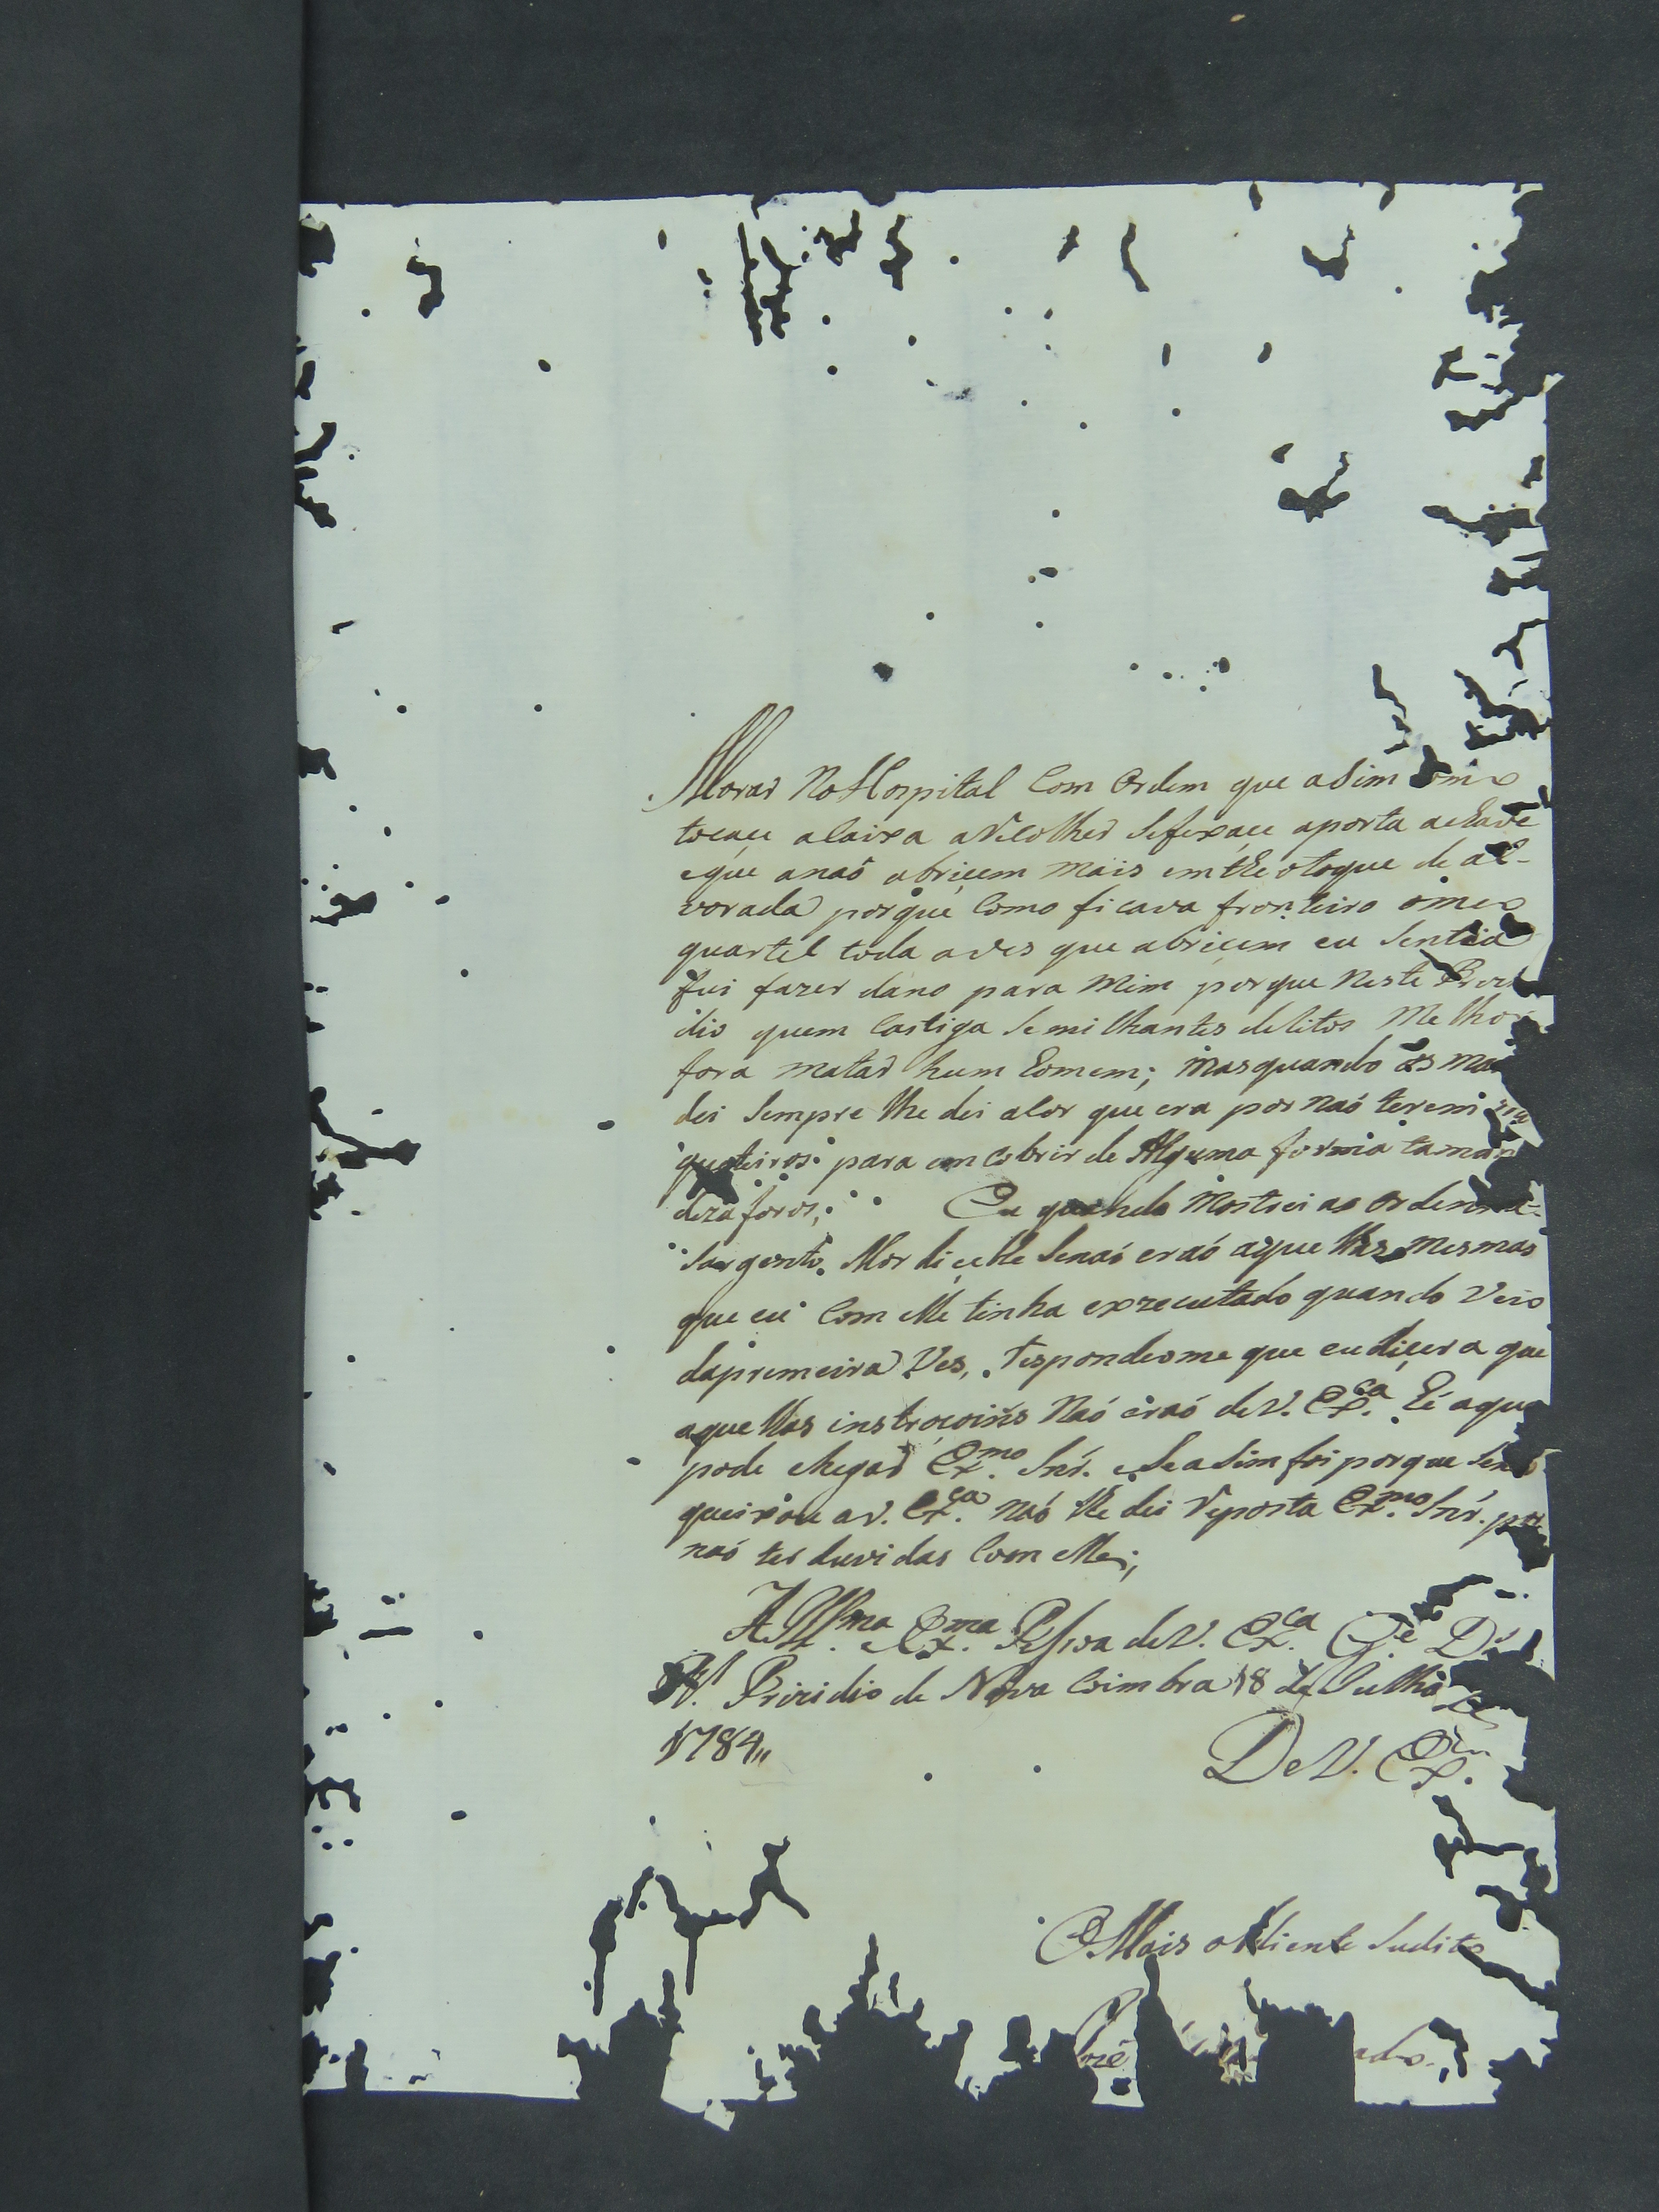 Morar No Hospital Com Ordem que asim
tocaçe a Caixa a Recolher sefexaçe aporta achave
eque anaó abriçem mais emthe otoque de al-
vorada porque Como ficava fronteiro ómeo
quartel toda aves que abriçem eu Sentia
fui fazer dano para Mim porque Neste Prezi
dio quem Castiga Semilhantes delitos Melhor
fora matar hum homem; mas quando os man
dei Sempre lhe dei a Cor que era por Naó terem
para em Cobrir de Alguma forma taman
dezaforos; Eu quando Mostrei as Ordens
Sargento Mor diçelhe Senaó eraó aquellas mesmas
que eu Com elle tinha exzecutado quando Veio
daprimeira Ves, Respondeome que eu diçera que
aquellas instroçoins Naó eraó de V. Exca. Hé aque
pode chegar Exmo. Snr. e Se asim foi porque Senaó
queixou a V. Exca. Naó lhe dei Reposta Exmo. Snr. por
naó ter duvidas Com elle;
A Illma. e Exma. Pessoa de V. Exca. Gde. Ds.
Prizidio de Nova Coimbra 18 de Julho de
1784,,
De V. Exca.
O Mais obdiente Sudito